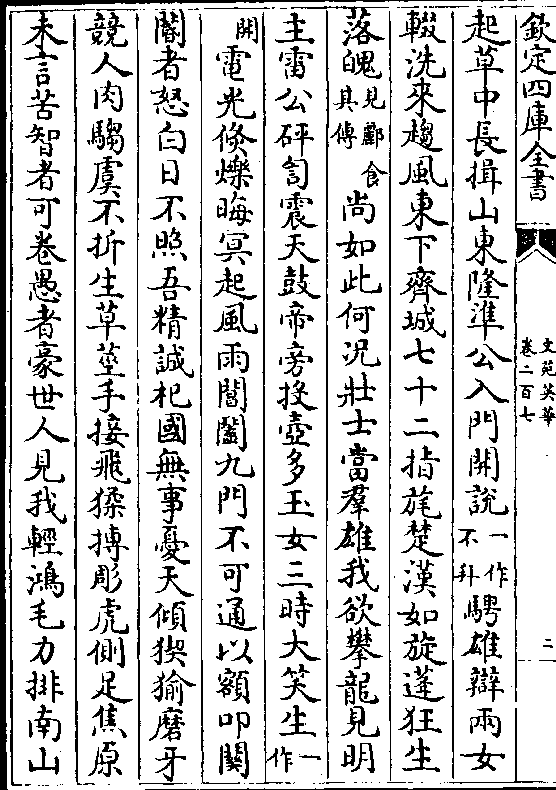 欽定四庫全書
文苑英華
卷二百七
二
起草中長揖山東隆準公入門開說一作不拜騁雄辯兩女
輟洗來趨風東下齊城七十二指旄楚漢如旋蓬狂生
落魄見酈食其傳尚如此何况壯士當羣雄我欲攀龍見明
主雷公砰訇震天鼓帝旁投壺多玉女三時大笑生一作
開電光倐爍晦冥起風雨閶闔九門不可通以額叩關
閽者怒白日不照吾精誠杞國無事憂天傾猰㺄磨牙
競人肉騶虞不折生草莖手接飛猱搏彫虎側足焦原
未言苦智者可卷愚者豪世人見我輕鴻毛力排南山